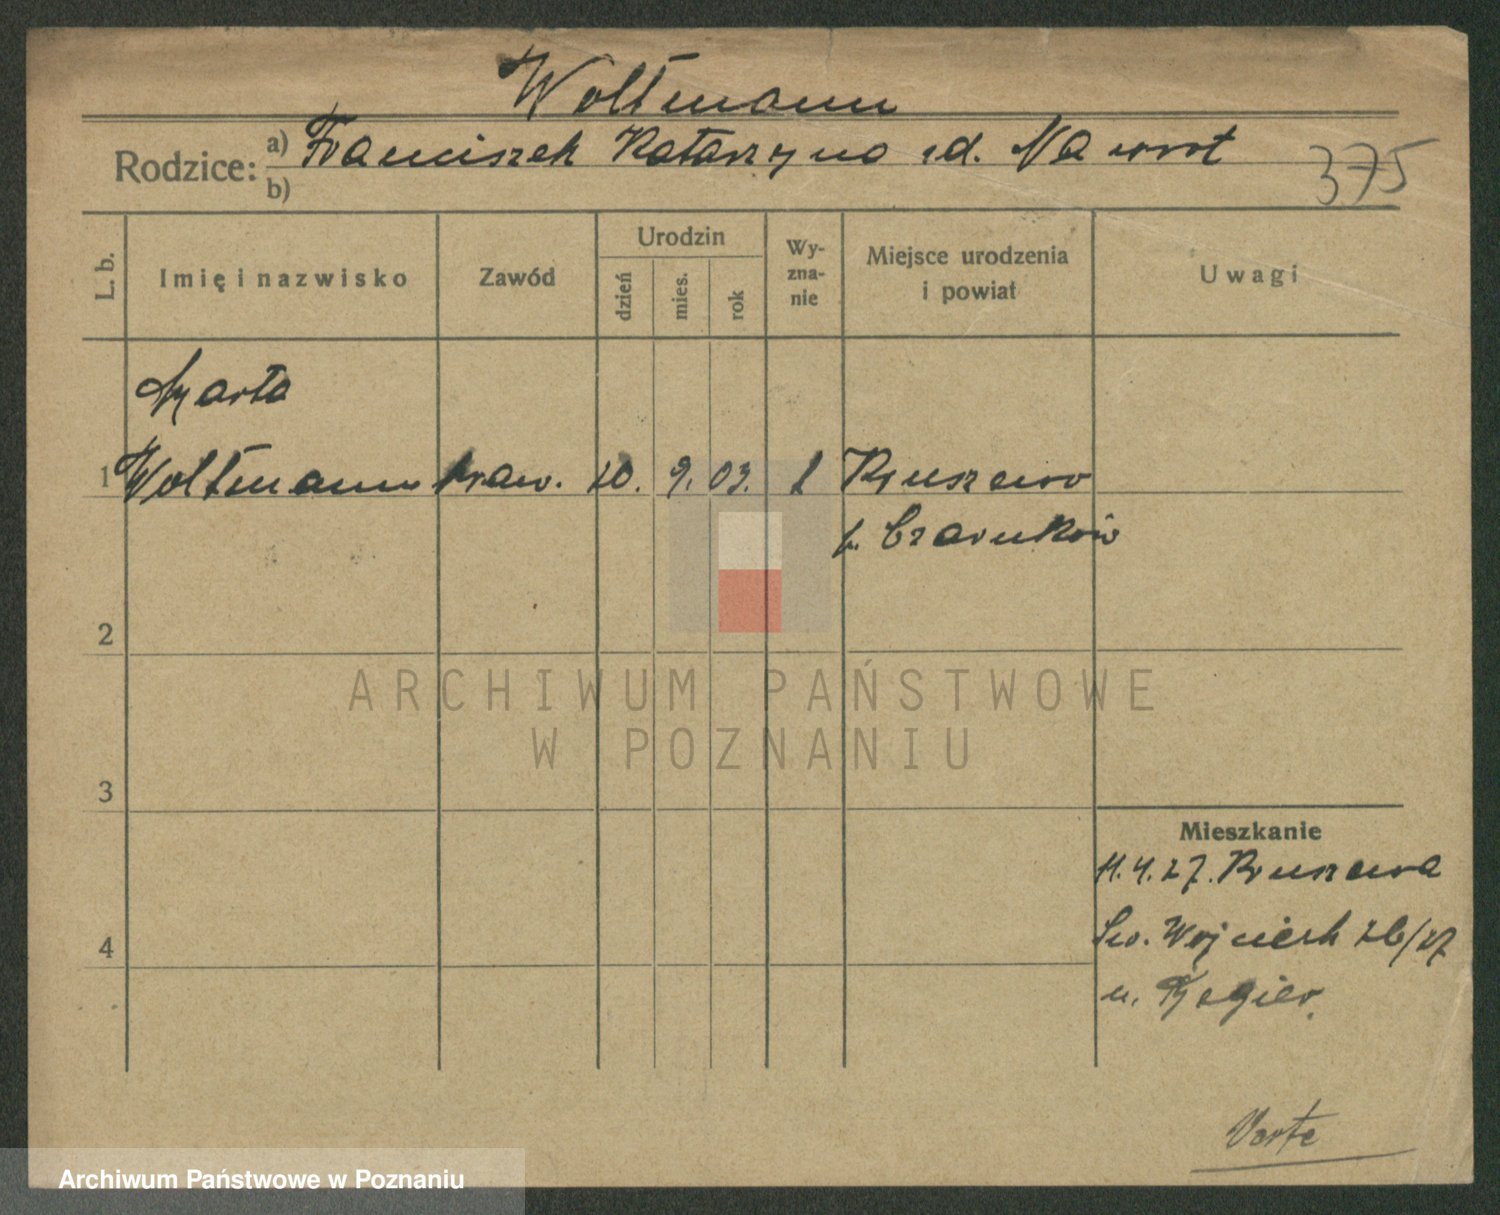 Woltmann
Rodzice: a) Franciszek Katarzyna zd. Nawrot
b)
375
L. b.
Imię i nazwisko
Zawód
Urodzin
dzień
mies.
rok
Wy-
zna-
nie
Miejsce urodzenia
i powiat
Uwagi
Marta
1 Woltmann kraw. 20. 9. 03. k Kruszewo
p. Czarnków
2
3
4
Mieszkanie
11.4.27. Kruszewa
Św. Wojciech 26/27
u.
Verte
ARCHIWUM PAŃSTWOWE
W POZNANIU
Archiwum Państwowe w Poznaniu